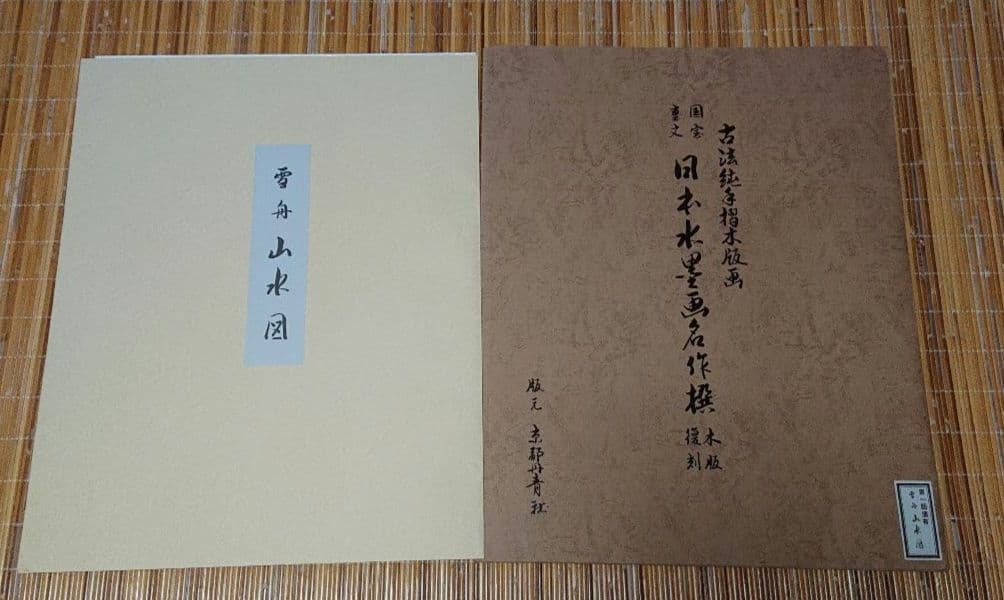 雪舟 山水図
古法純手摺木版画
国宝
重文
日本水墨画名作撰
木版
復刻
版元 京都丹青社
第一回頒布
雪舟 山水図